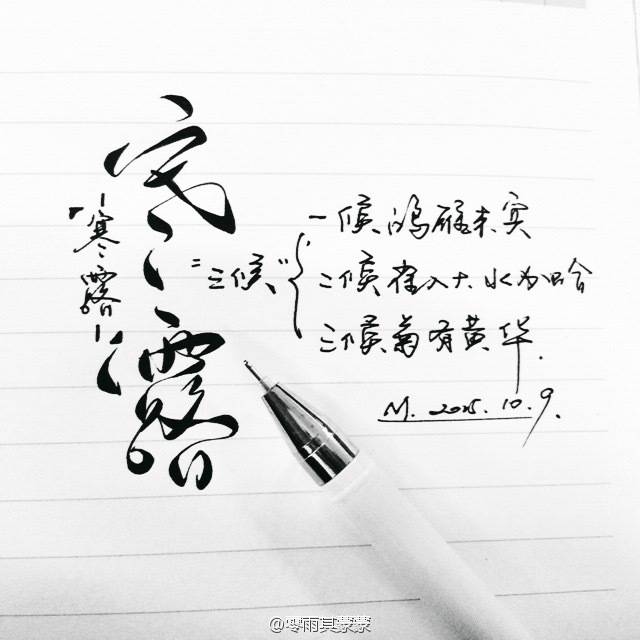 寒露
「寒露」
"三候"
一候鸿雁来宾
二候雀入大水为蛤
三候菊有黄华.
M. 2015.10.9.
@零雨其蒙蒙